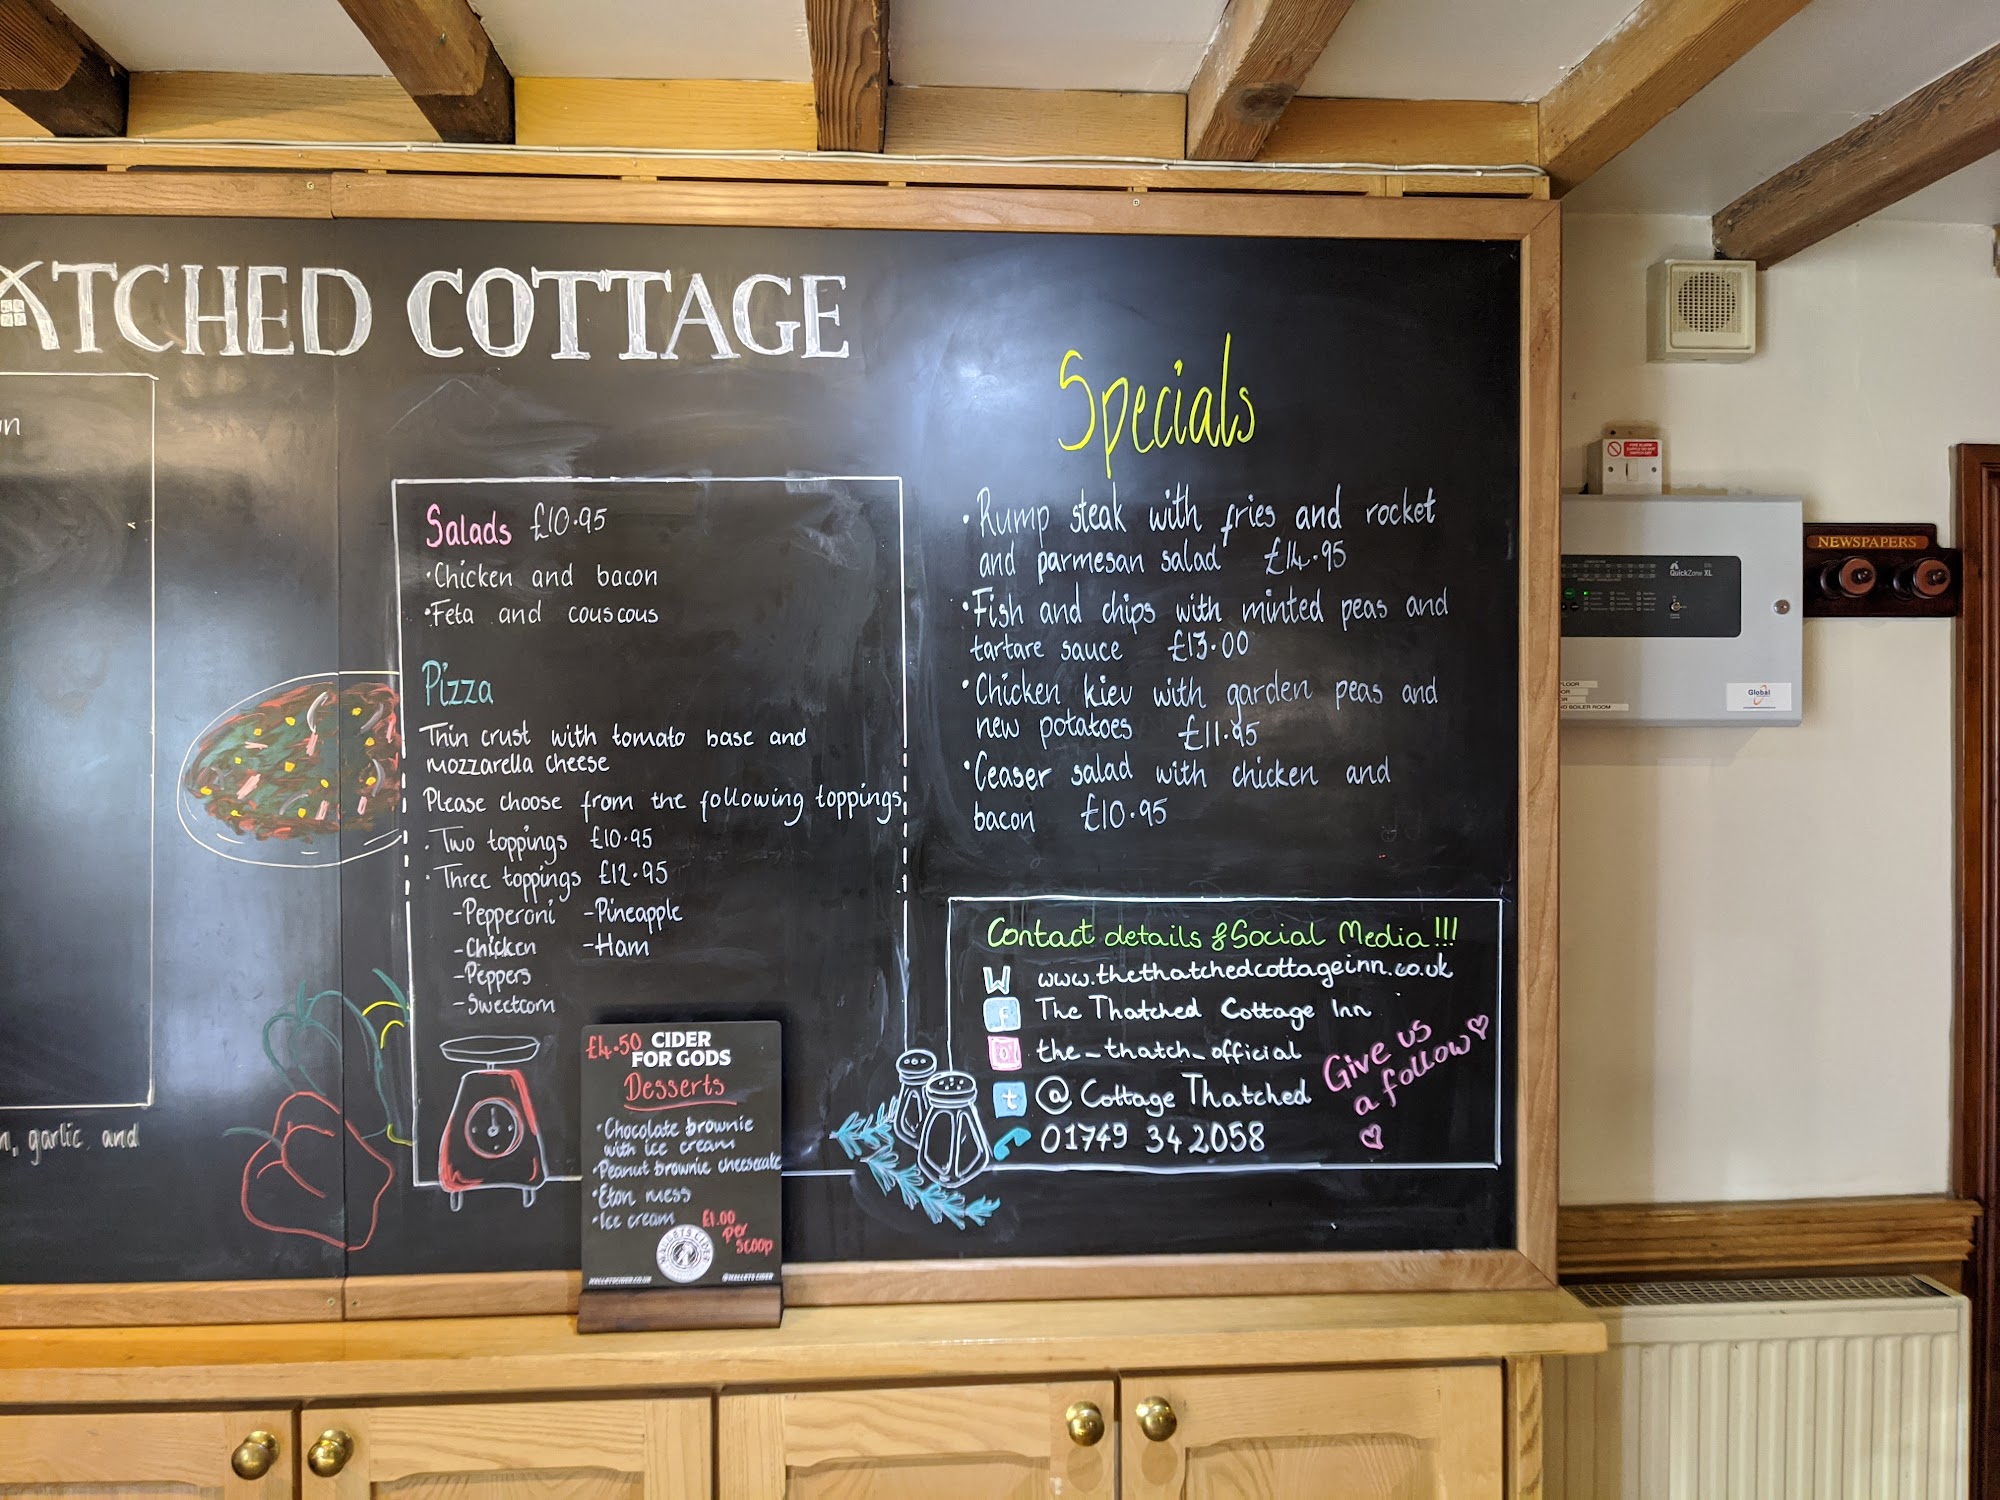 THATCHED COTTAGE
Salads £10.95
•Chicken and bacon
•Feta and couscous
Pizza
Thin crust with tomato base and
mozzarella cheese
Please choose from the following toppings
• Two toppings £10.95
• Three toppings £12.95
-Pepperoni -Pineapple
-Chicken -Ham
-Peppers
-Sweetcorn
garlic and
£4.50 CIDER
FOR GODS
Desserts
•Chocolate brownie
with ice cream
•Peanut brownie cheesecake
•Eton mess
•Ice cream £1.00
per
scoop
Specials
• Rump steak with fries and rocket
and parmesan salad £14.95
•Fish and chips with minted peas and
tartare sauce £13.00
•Chicken kiev with garden peas and
new potatoes £11.95
•Ceaser salad with chicken and
bacon £10.95
Contact details & Social Media!!!
W www.thethatchedcottageinn.co.uk
f The Thatched Cottage Inn
the_thatch_official
t @ Cottage Thatched
01749 342058
Give us
a follow
NEWSPAPERS
QuickZone XL
Global
FLOOR
BOILER ROOM